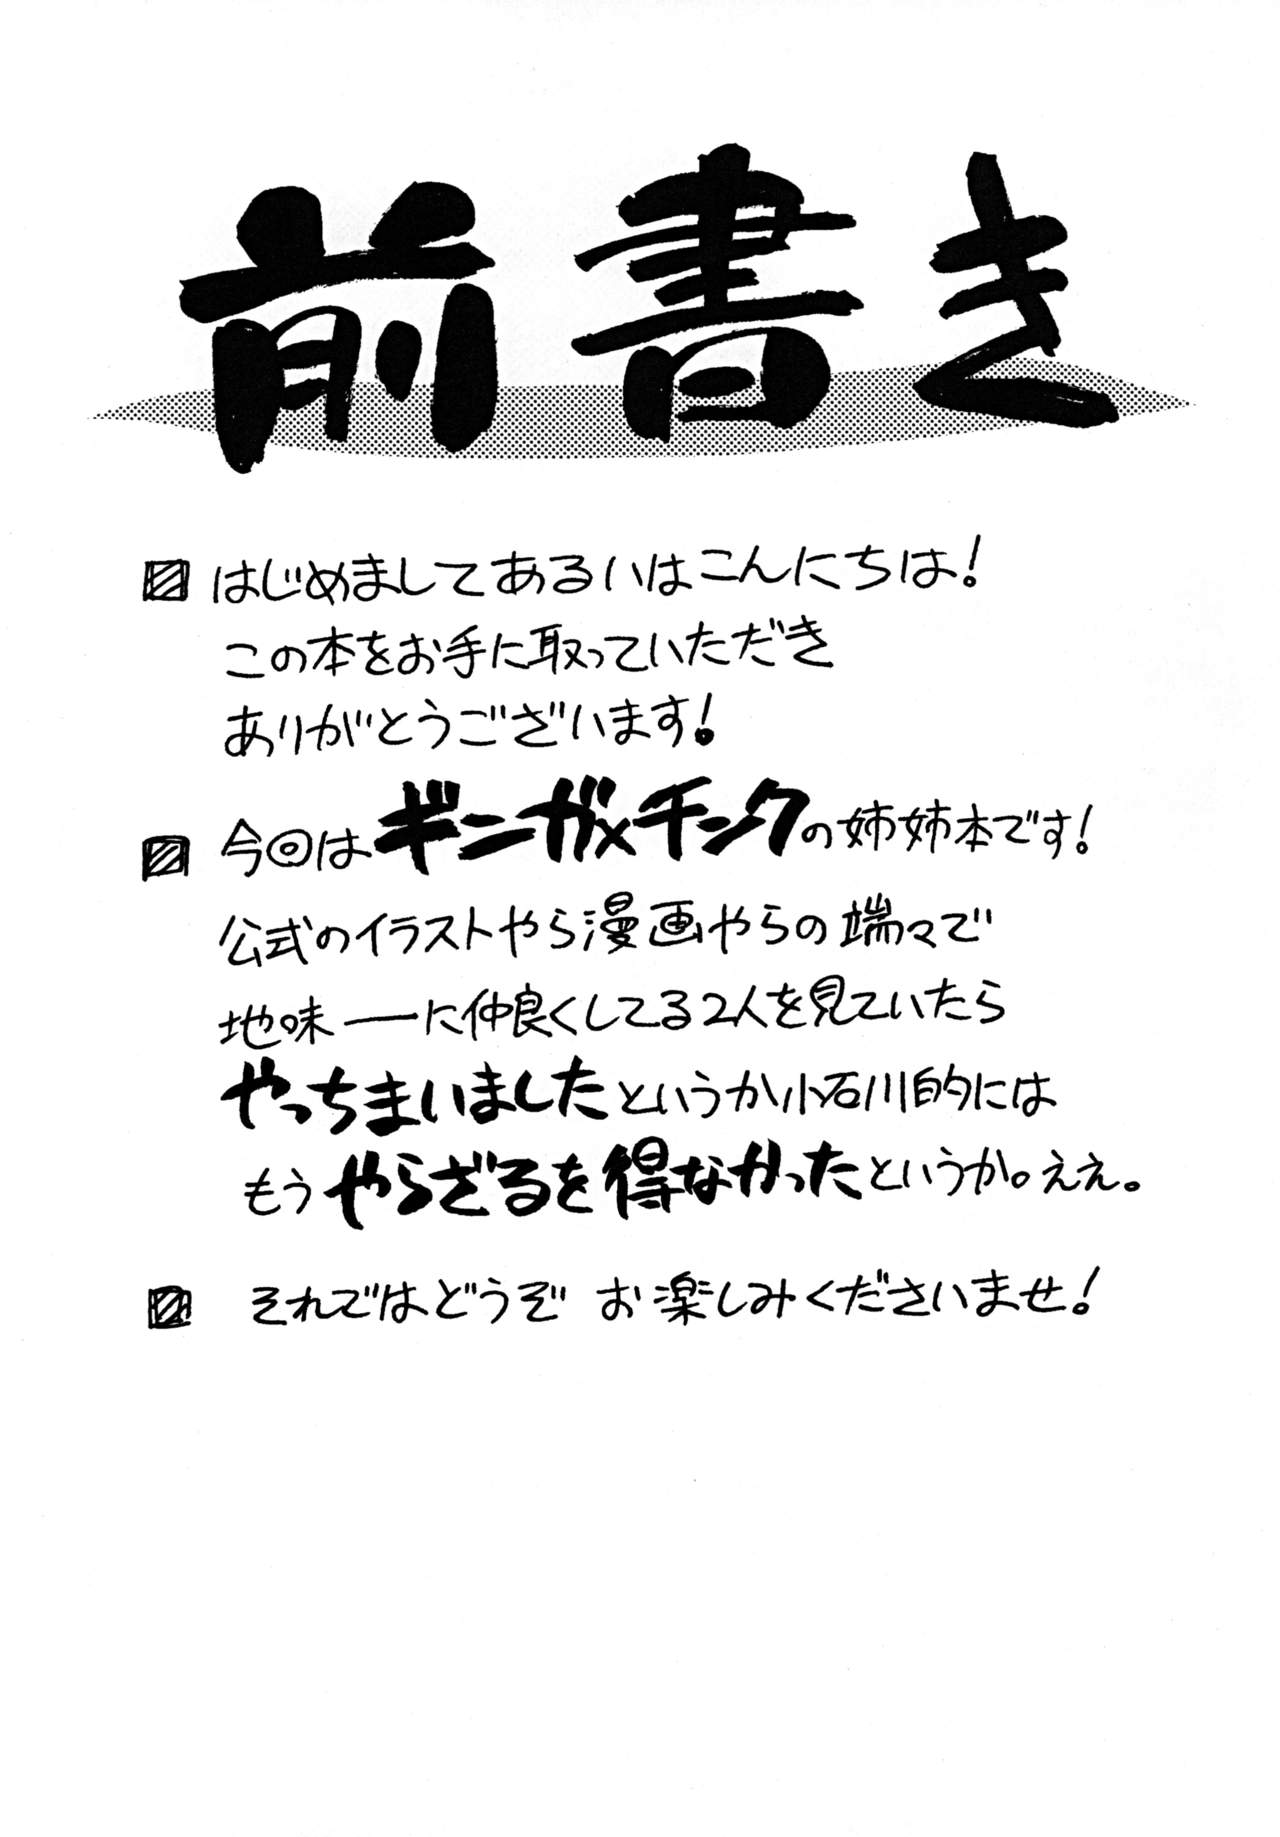 前書き
はじめましてあるいはこんにちは!
この本をお手に取っていただき
ありがとうございます!
今回はギンガ×チンクの姉姉本です!
公式のイラストやら漫画やらの端々で
地味――に仲良くしてる2人を見ていたら
やっちまいましたというか小石川的には
もうやらざるを得なかったというか。ええ。
それではどうぞ お楽しみくださいませ!